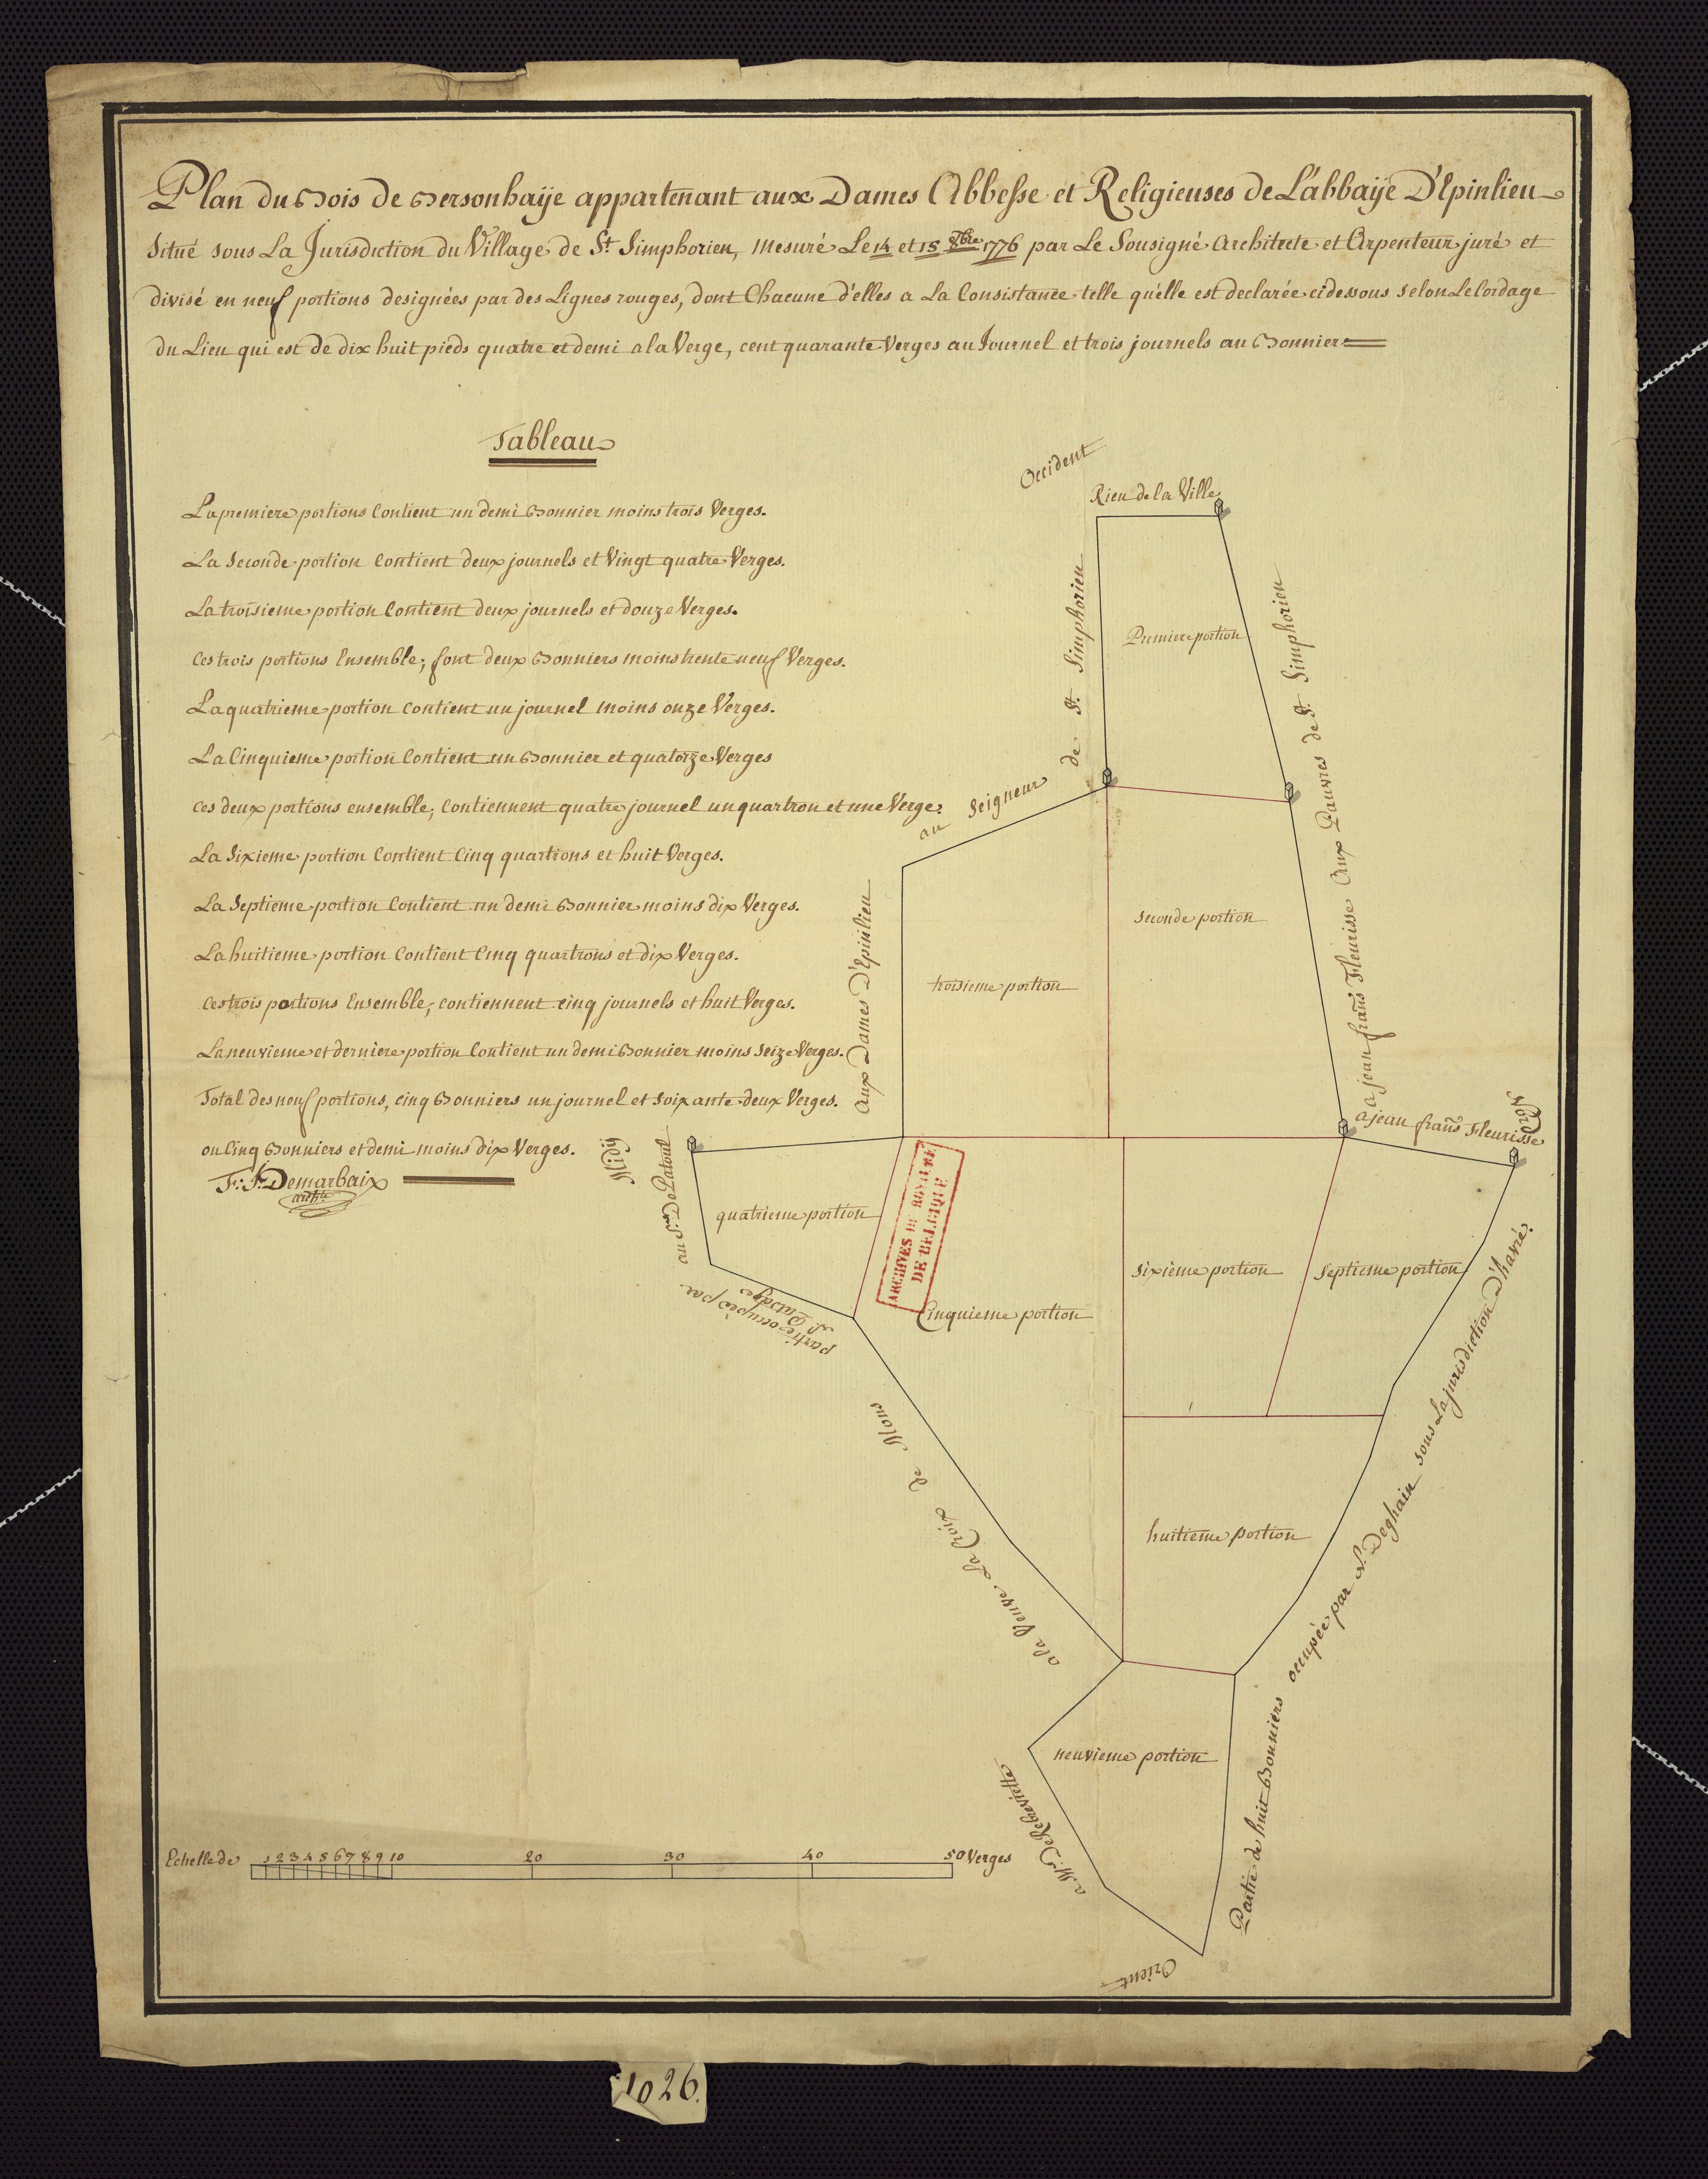 Plan du Bois de Bersonhaÿe appartenant aux Dames Abbesse et Religieuses de L'abbaÿe D'Epinlieu
Situé sous La Jurisdiction du Village de St. Simphorien, mesuré Le 14 et 15 8bre 1776 par Le Sousigné Architecte et Arpenteur juré et
divisé en neuf portions designées par des Lignes rouges, dont Chacune d'elles a La Consistance telle qu'elle est declarée cidessous selon Le Cordage
du Lieu qui est de dix huit pieds quatre et demi a la Verge, cent quarante Verges au Journel et trois journels au Bonnier
Tableau
La premiere portions Contient un demi Bonnier moins trois Verges.
La Seconde portion Contient deux journels et Vingt quatre Verges.
La troisieme portion Contient deux journels et douze Verges.
Ces trois portions Ensemble, font deux Bonniers moins trente neuf Verges.
La quatrieme portion Contient un journel moins onze Verges.
La Cinquieme portion Contient un Bonnier et quatorze Verges
ces deux portions ensemble, Contiennent quatre journel un quartron et une Verge.
La Sixieme portion Contient Cinq quartrons et huit Verges.
La Septieme portion Contient un demi Bonnier moins dix Verges.
La huitieme portion Contient Cinq quartrons et dix Verges.
Ces trois portions Ensemble, contiennent cinq journels et huit Verges.
La neuvieme et derniere portion Contient un demi Bonnier moins Seize Verges.
Total des neuf portions, cinq Bonniers un journel et soixante deux Verges.
ou Cinq Bonniers et demi moins dix Verges.
F: J: Demarbaix
archte
Occident
Rieu de la Ville
Premiere portion
au Seigneur de St. Simphorien
Aux Pauvres de St. Simphorien
Seconde portion
troisieme portion
Aux Dames D'Epinlieu
a jean frans Fleurisse
a jean frans Fleurisse
Nord
Midy
au Sr. De Patoul
quatrieme portion
partie occupée par
ARCHIVES DU ROYAUME
DE BELGIQUE
Cinquieme portion
sixieme portion
Septieme portion
a la Veuve La Croix de Mons
huitieme portion
neuvieme portion
Partie de huit Bonniers occupée par Deghain sous La jurisdiction D'havré.
Orient
Echelle de 1 2 3 4 5 6 7 8 9 10 20 30 40 50 Verges
1026.